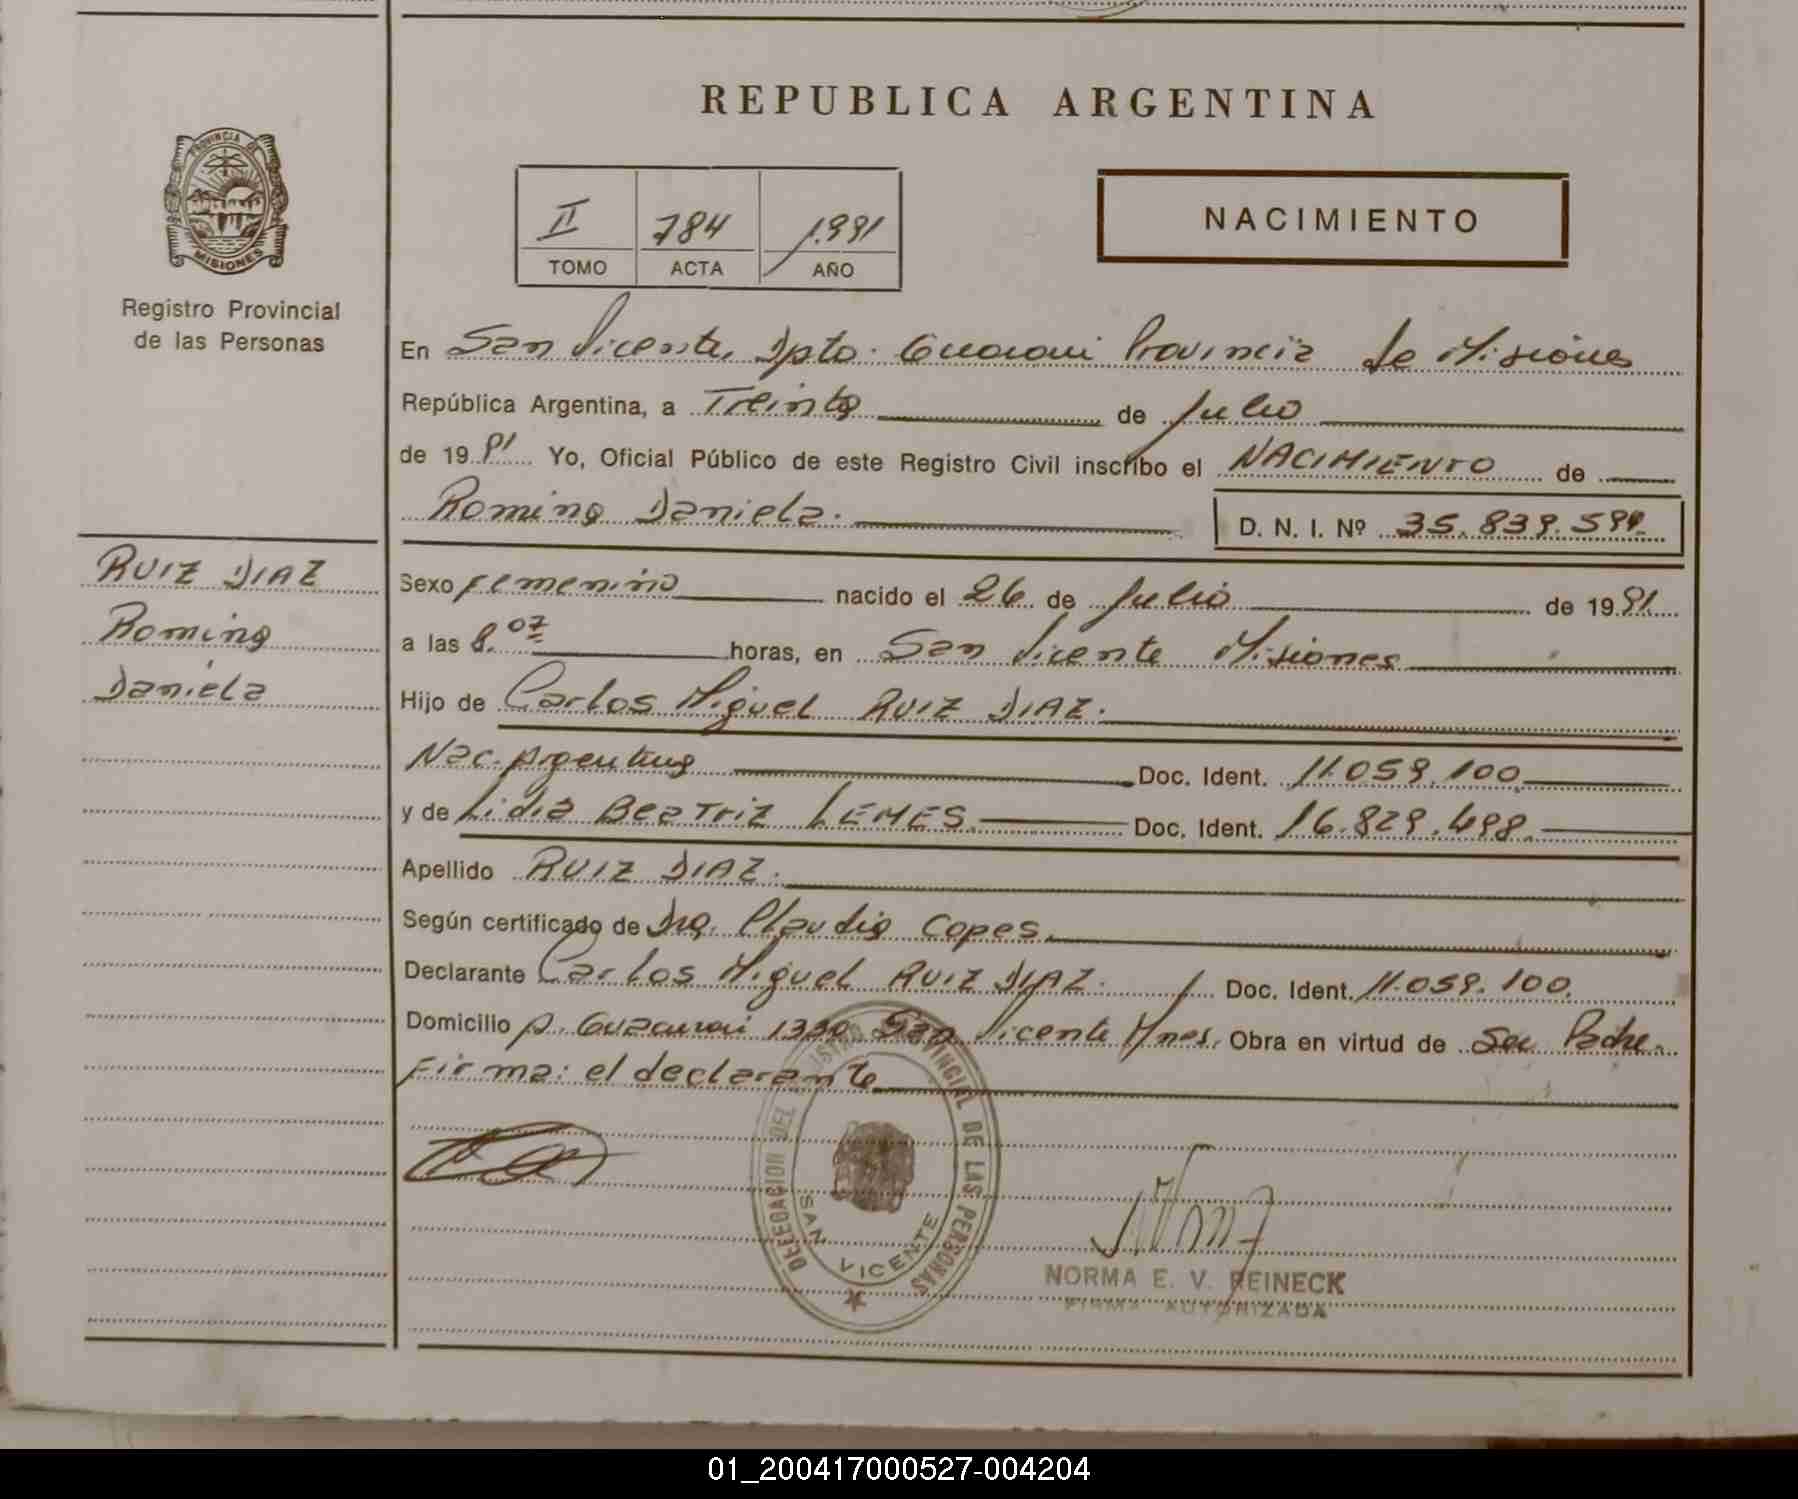 REPUBLICA ARGENTINA
PROVINCIA DE
MISIONES
Registro Provincial
de las Personas
II 784 1.991
TOMO ACTA AÑO
NACIMIENTO
En San Vicente, Dpto. Guarani Provincia de Misiones
República Argentina, a Treinta de Julio
de 1991 Yo, Oficial Público de este Registro Civil inscribo el NACIMIENTO de
Romina Daniela. D. N. I. Nº 35.839.594.
RUIZ DIAZ
Romina
Daniela
Sexo Femenino nacido el 26 de Julio de 1991
a las 8.07 horas, en San Vicente Misiones
Hijo de Carlos Miguel RUIZ DIAZ.
Nac. Argentina Doc. Ident. 11.059.100
y de Lidia Beatriz LEMES. Doc. Ident. 16.829.498.
Apellido RUIZ DIAZ.
Según certificado de Dra. Claudia Copes.
Declarante Carlos Miguel RUIZ DIAZ. Doc. Ident. 11.059.100.
Domicilio San Vicente Mnes. Obra en virtud de Ser Padre.
Firma: el declarante
DELEGACION DEL REGISTRO PROVINCIAL DE LAS PERSONAS
SAN VICENTE
NORMA E. V. REINECK
FIRMA AUTORIZADA
01_200417000527-004204